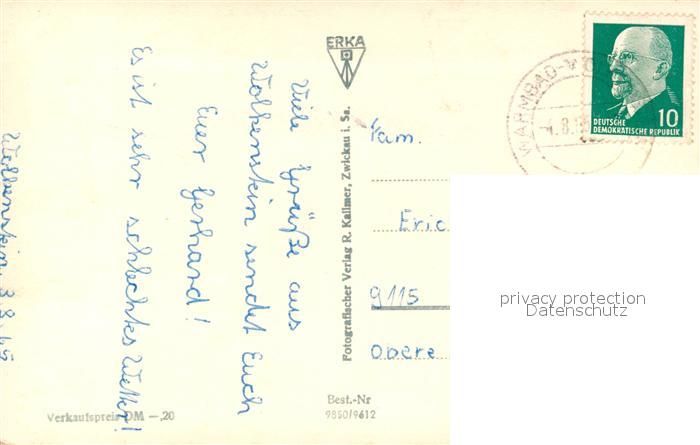 Wolkenstein, 3.8.65
Viele Grüße aus
Wolkenstein sendet Euch
Euer Gerhard!
Es ist sehr schlechtes Wetter!
Verkaufspreis DM —,20
ERKA
Fotografischer Verlag R. Kallmer, Zwickau i. Sa.
Best.-Nr
9850/9612
WARMBAD-WO
4.8.6
DEUTSCHE
DEMOKRATISCHE REPUBLIK
10
Fam.
Eric
9115
Obere
privacy protection
Datenschutz